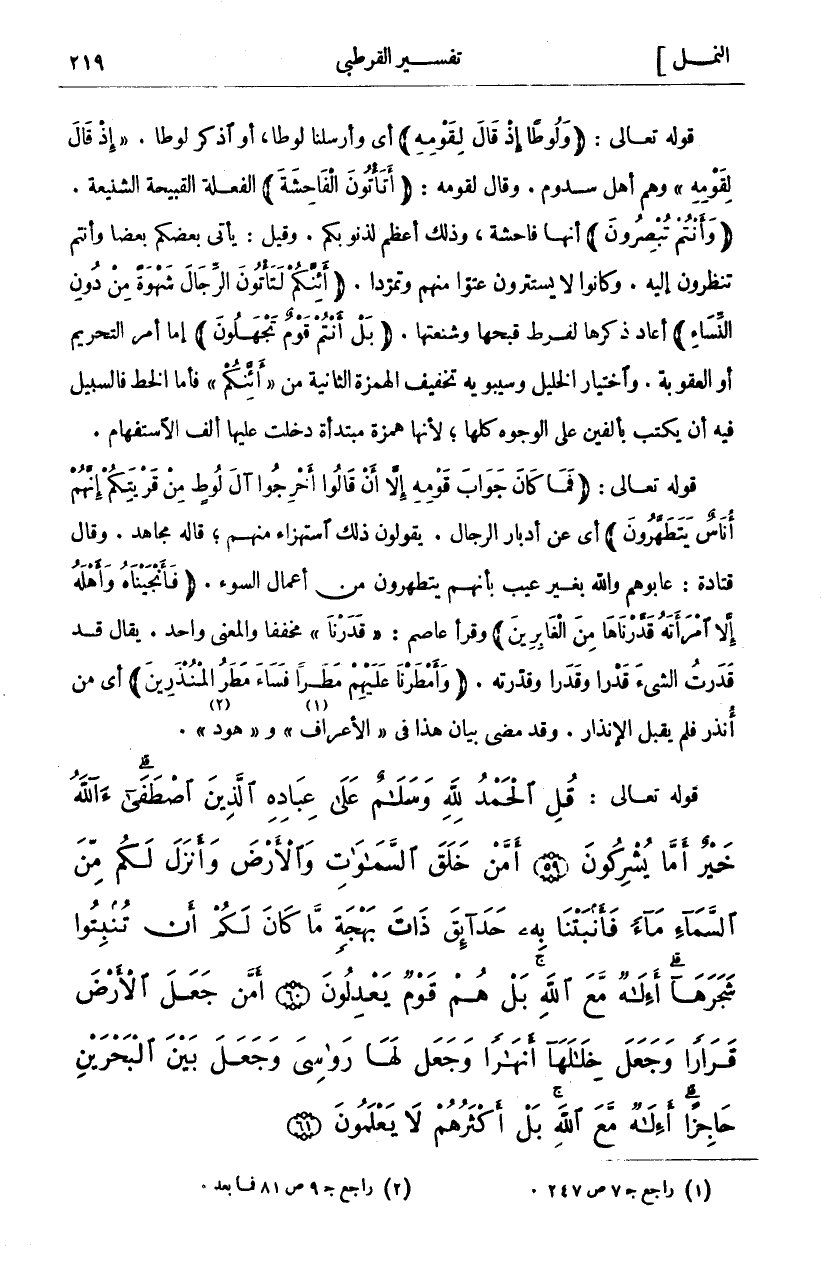 النمل] تفسير القرطبى ٢١٩
قوله تعالى : ﴿ وَلُوطًا إِذْ قَالَ لِقَوْمِهِ ﴾ أى وأرسلنا لوطا، أو ٱذكر لوطا . « إِذْ قَالَ
لِقَوْمِهِ » وهم أهل سدوم . وقال لقومه : ﴿ أَتَأْتُونَ الْفَاحِشَةَ ﴾ الفعلة القبيحة الشنيعة .
﴿ وَأَنْتُمْ تُبْصِرُونَ ﴾ أنها فاحشة ، وذلك أعظم لذنوبكم . وقيل : يأتى بعضكم بعضا وأنتم
تنظرون إليه . وكانوا لا يستترون عتوّا منهم وتمرّدا . ﴿ أَئِنَّكُمْ لَتَأْتُونَ الرِّجَالَ شَهْوَةً مِنْ دُونِ
النِّسَاءِ ﴾ أعاد ذكرها لفرط قبحها وشنعتها . ﴿ بَلْ أَنْتُمْ قَوْمٌ تَجْهَلُونَ ﴾ إما أمر التحريم
أو العقوبة . وٱختيار الخليل وسيبويه تخفيف الهمزة الثانية من « أَئِنَّكُمْ » فأما الخط فالسبيل
فيه أن يكتب بألفين على الوجوه كلها ؛ لأنها همزة مبتدأة دخلت عليها ألف الٱستفهام .
قوله تعالى : ﴿ فَمَا كَانَ جَوَابَ قَوْمِهِ إِلَّا أَنْ قَالُوا أَخْرِجُوا آلَ لُوطٍ مِنْ قَرْيَتِكُمْ إِنَّهُمْ
أُنَاسٌ يَتَطَهَّرُونَ ﴾ أى عن أدبار الرجال . يقولون ذلك ٱستهزاء منهم ؛ قاله مجاهد . وقال
قتادة : عابوهم والله بغير عيب بأنهم يتطهرون من أعمال السوء . ﴿ فَأَنْجَيْنَاهُ وَأَهْلَهُ
إِلَّا ٱمْرَأَتَهُ قَدَّرْنَاهَا مِنَ الْغَابِرِينَ ﴾ وقرأ عاصم : « قَدَرْنَا » مخففا والمعنى واحد . يقال قد
قَدَرتُ الشىءَ قَدْرا وقَدَرا وقدّرته . ﴿ وَأَمْطَرْنَا عَلَيْهِمْ مَطَرًا فَسَاءَ مَطَرُ الْمُنْذَرِينَ ﴾ أى من
أُنذر فلم يقبل الإنذار . وقد مضى بيان هذا فى « الأعراف »(١) و« هود »(٢) .
قوله تعالى : قُلِ ٱلْحَمْدُ لِلَّهِ وَسَلَـٰمٌ عَلَىٰ عِبَادِهِ ٱلَّذِينَ ٱصْطَفَىٰٓ ۗ ءَآللَّهُ
خَيْرٌ أَمَّا يُشْرِكُونَ ﴿٥٩﴾ أَمَّنْ خَلَقَ ٱلسَّمَـٰوَٰتِ وَٱلْأَرْضَ وَأَنزَلَ لَكُم مِّنَ
ٱلسَّمَآءِ مَآءً فَأَنۢبَتْنَا بِهِۦ حَدَآئِقَ ذَاتَ بَهْجَةٍ مَّا كَانَ لَكُمْ أَن تُنۢبِتُوا
شَجَرَهَآ ۗ أَءِلَـٰهٌ مَّعَ ٱللَّهِ ۚ بَلْ هُمْ قَوْمٌ يَعْدِلُونَ ﴿٦٠﴾ أَمَّن جَعَلَ ٱلْأَرْضَ
قَرَارًا وَجَعَلَ خِلَـٰلَهَآ أَنْهَـٰرًا وَجَعَلَ لَهَا رَوَٰسِىَ وَجَعَلَ بَيْنَ ٱلْبَحْرَيْنِ
حَاجِزًا ۗ أَءِلَـٰهٌ مَّعَ ٱللَّهِ ۚ بَلْ أَكْثَرُهُمْ لَا يَعْلَمُونَ ﴿٦١﴾
(١) راجع ج ٧ ص ٢٤٧ . (٢) راجع ج ٩ ص ٨١ فما بعد .